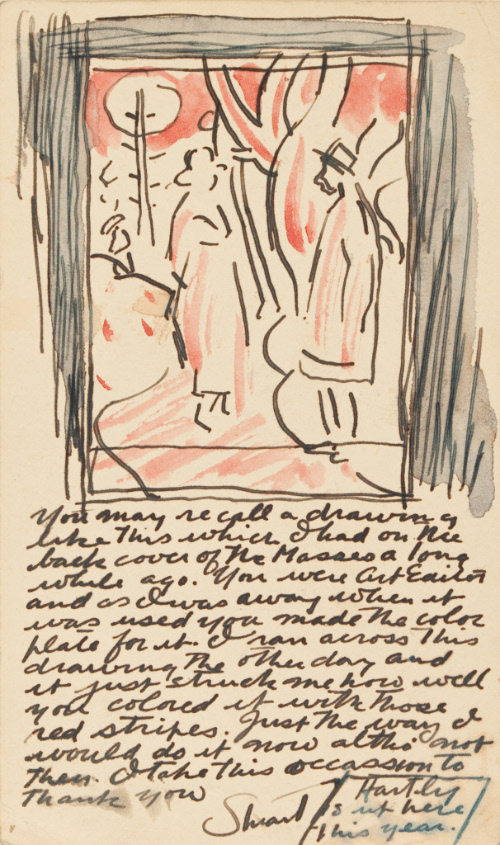 You may recall a drawing
like this which I had on the
back cover of the Masses a long
while ago. You were Art Editor
and as I was away when it
was used you made the color
plate for it. I ran across this
drawing the other day and
it just struck me how well
you colored it with those
red stripes. Just the way I
would do it now altho' not
then. I take this occassion to
thank you
Stuart
Hartly
is up here
this year.